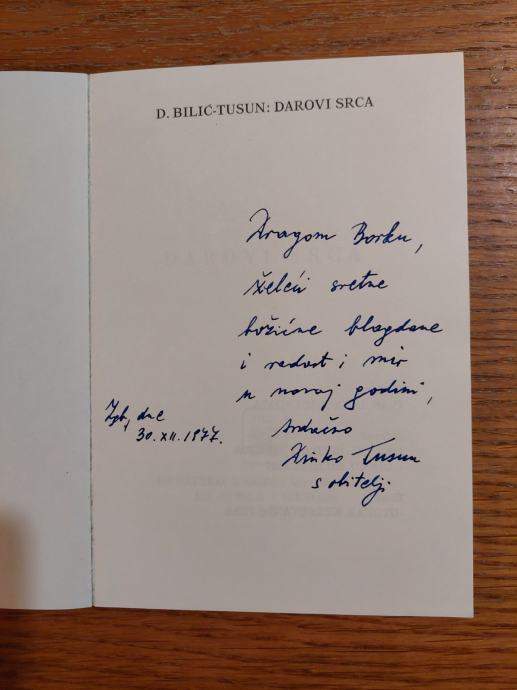 D. BILIĆ-TUSUN: DAROVI SRCA
Dragom Borku,
želeći sretne
božićne blagdane
i radost i mir
u novoj godini,
srdačno
Dinko Tusun
s obitelji.
Zgb, dne
30. XII. 1977.